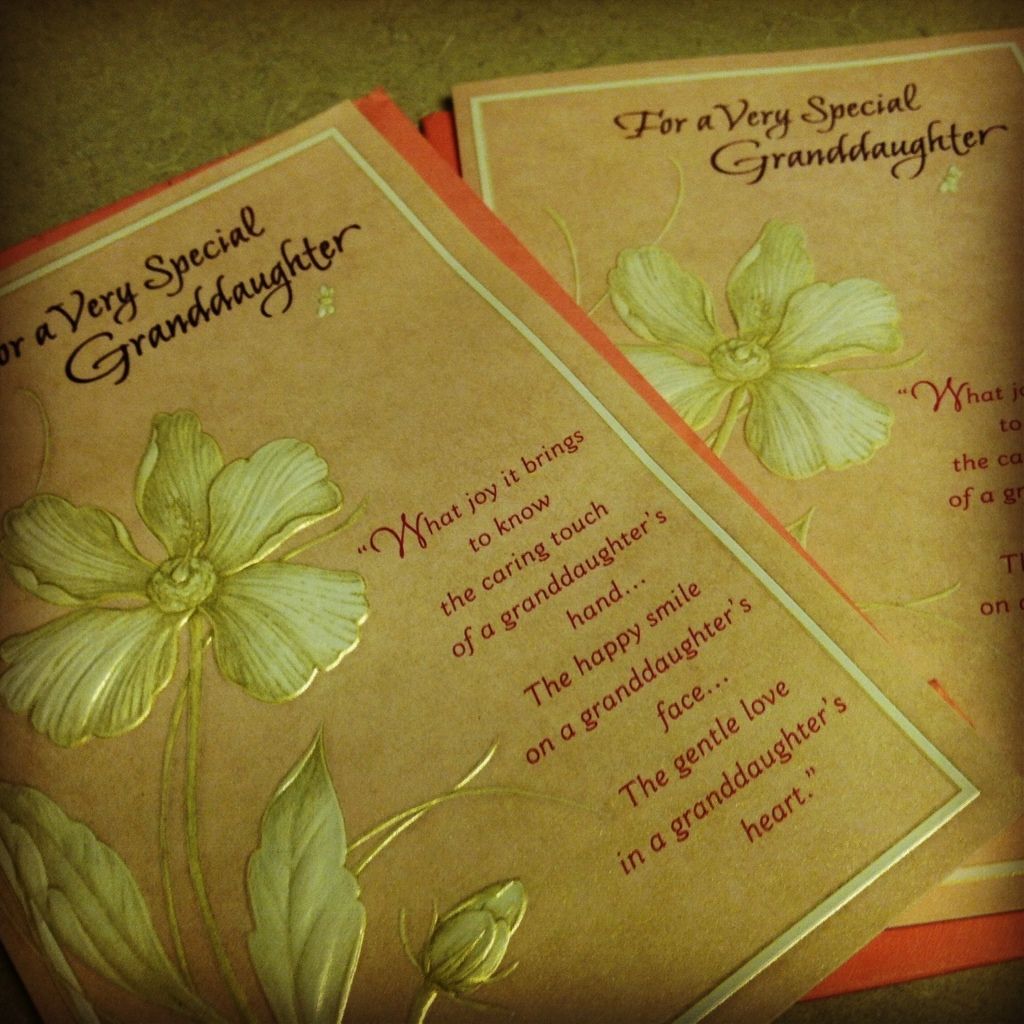 For a Very Special
Granddaughter
or a Very Special
Granddaughter
"What joy it brings
to know
the caring touch
of a granddaughter's
hand...
The happy smile
on a granddaughter's
face...
The gentle love
in a granddaughter's
heart."
"What jo
to
the ca
of a gr
Th
on a